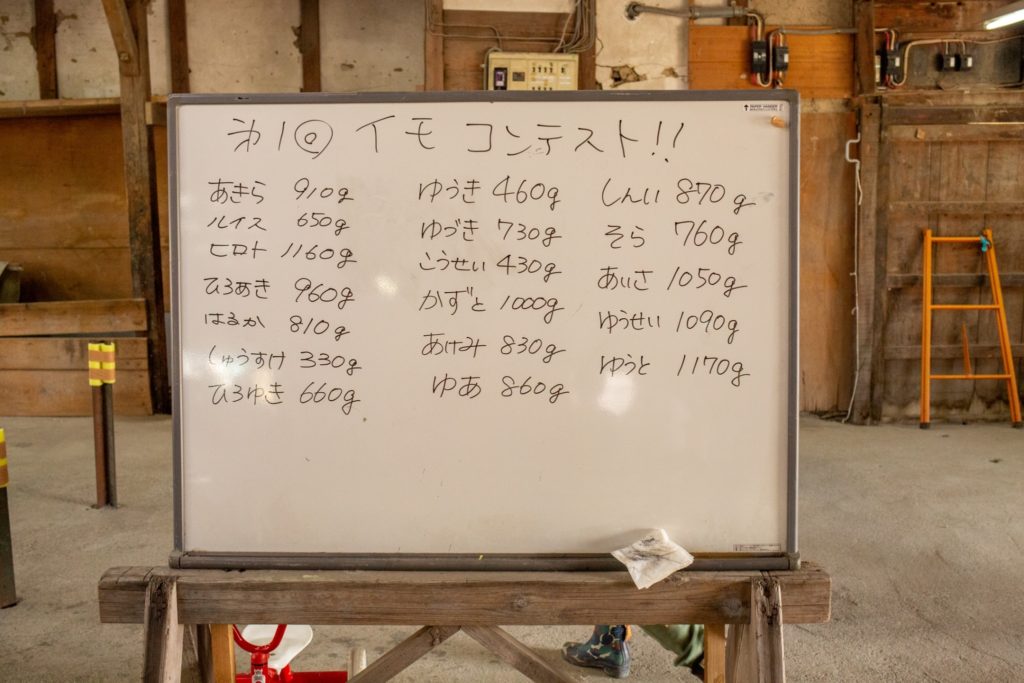 第1回 イモ コンテスト!!
あきら 910g
ルイス 650g
ヒロト 1160g
ひろあき 960g
はるか 810g
しゅうすけ 330g
ひろゆき 660g
ゆうき 460g
ゆづき 730g
こうせい 430g
かずと 1000g
あけみ 830g
ゆあ 860g
しんい 870g
そら 760g
あいさ 1050g
ゆうせい 1090g
ゆうと 1170g